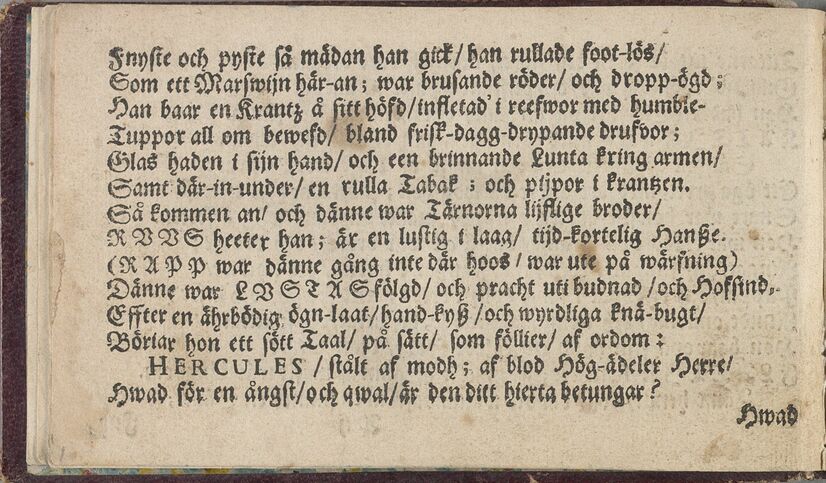 Fnyste och pyste så mädan han gick/ han rullade foot-lös/
Som ett Marswijn här-an; war brusande röder/ och dropp-ögd;
Han baar en Krantz å sitt höfd/infletad' i reefwor med humble-
Tuppor all om bewefd/ bland frisk-dagg-drypande drufvor;
Glas haden i sijn hand/ och een brinnande Lunta kring armen/
Samt där-in-under/ en rulla Tabak; och pijpor i krantzen.
Så kommen an/ och dänne war Tärnorna lijflige broder/
RVVS heeter han; är en lustig i laag/ tijd-kortelig Hanße.
(RAPP war dänne gång inte där hoos/ war ute på wärfning)
Dänne war LVSTAS fölgd/ och pracht uti budnad/och Hofsind.
Effter en ährbödig ögn-laat/hand-kyß/och wyrdliga knä-bugt/
Böriar hon ett sött Taal/ på sätt/ som föllier/ af ordom:
HERCULES/stålt af modh; af blod Hög-ädeler Herre/
Hwad för en ångst/och qwal/är den ditt hierta betungar?
Hwad